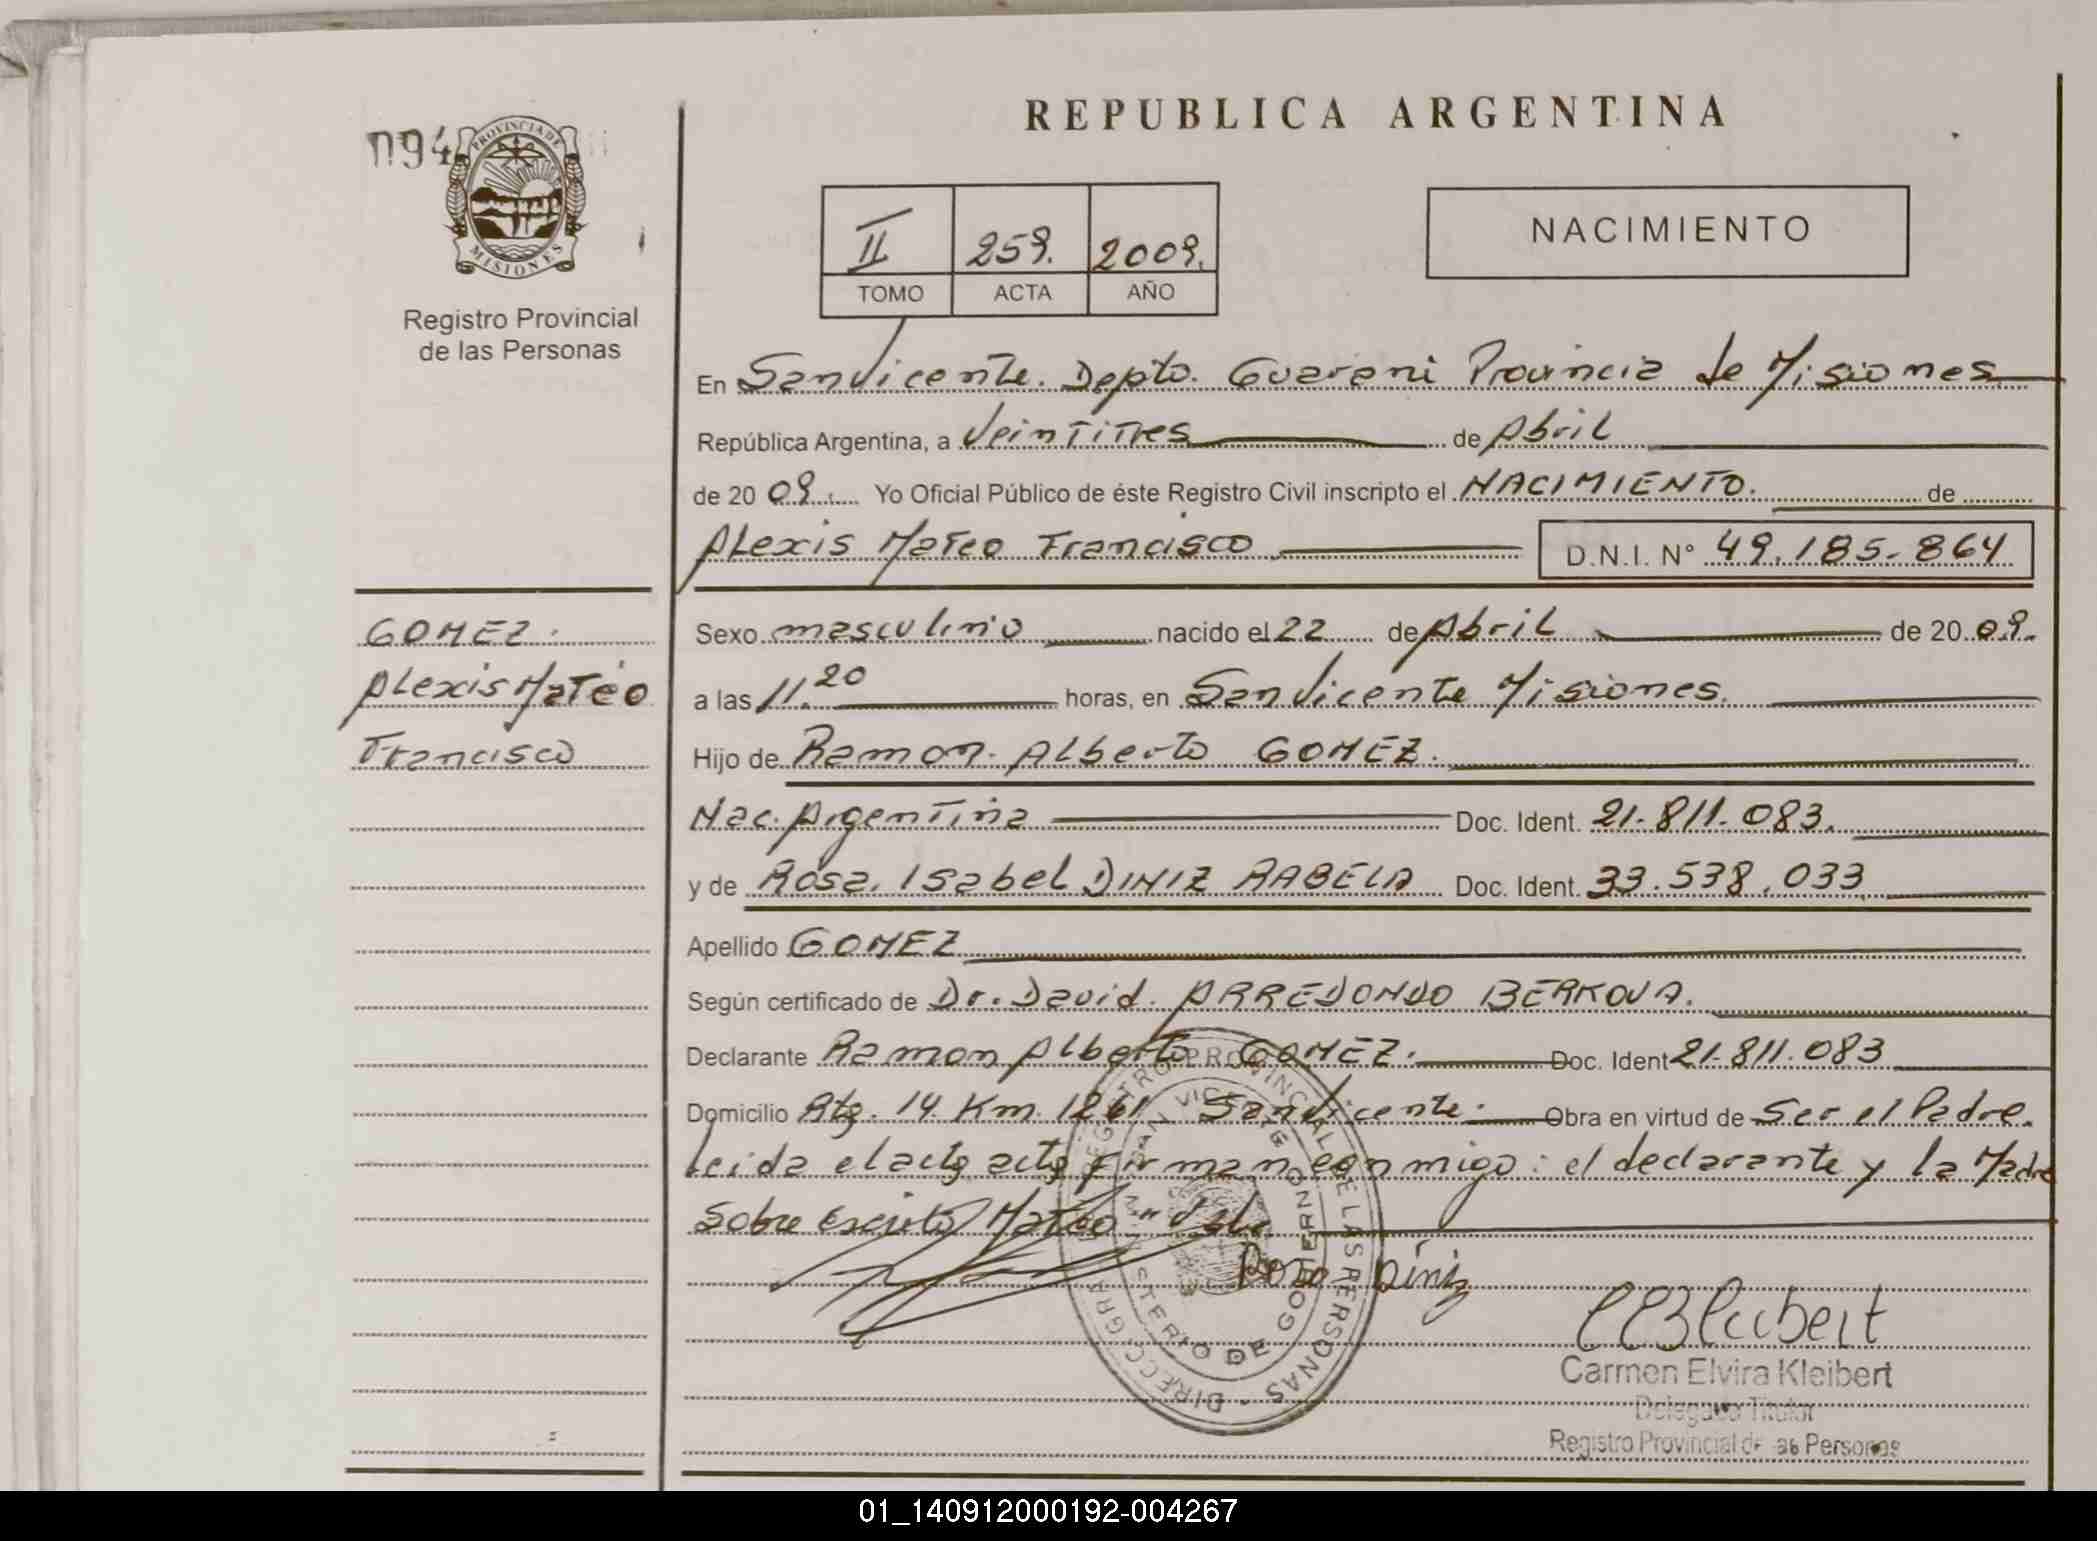 REPUBLICA ARGENTINA
094
PROVINCIA DE
MISIONES
Registro Provincial
de las Personas
II 259. 2009.
TOMO ACTA AÑO
NACIMIENTO
En San Vicente. Depto. Guarani Provincia de Misiones
República Argentina, a Veintitres de Abril
de 20 09. Yo Oficial Público de éste Registro Civil inscripto el NACIMIENTO. de
Alexis Mateo Francisco D.N.I. N° 49.185.864
GOMEZ.
Alexis Mateo
Francisco
Sexo masculino nacido el 22 de Abril de 20 09.
a las 11.20 horas, en San Vicente Misiones.
Hijo de Ramon Alberto GOMEZ.
Nac. Argentina Doc. Ident. 21.811.083.
y de Rosa Isabel DINIZ RABELA Doc. Ident. 33.538.033
Apellido GOMEZ
Según certificado de Dr. David ARREDONDO BERKOVA.
Declarante Ramon Alberto GOMEZ. Doc. Ident 21.811.083
Domicilio Rta. 14 Km. 1261 San Vicente. Obra en virtud de Ser el Padre.
leida el acta acta firman conmigo: el declarante y la Madre
Sobre Escrito Mateo "Vale
Rosa Diniz
DIRECC. GRAL. REGISTRO PROVINCIAL DE LAS PERSONAS
SAN VICENTE
MINISTERIO DE GOBIERNO
CEKleibert
Carmen Elvira Kleibert
Delegada Titular
Registro Provincial de las Personas
01_140912000192-004267